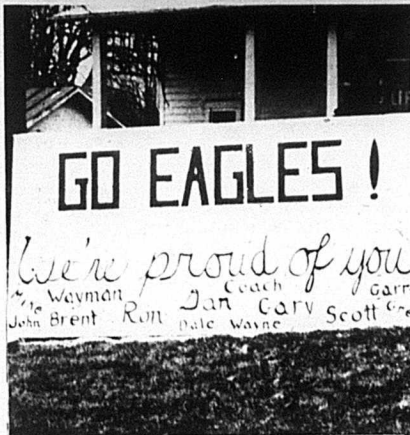 GO EAGLES !
We're proud of you
Wayman Coach
John Brent Ron Dan Gary Scott
Dale Wayne